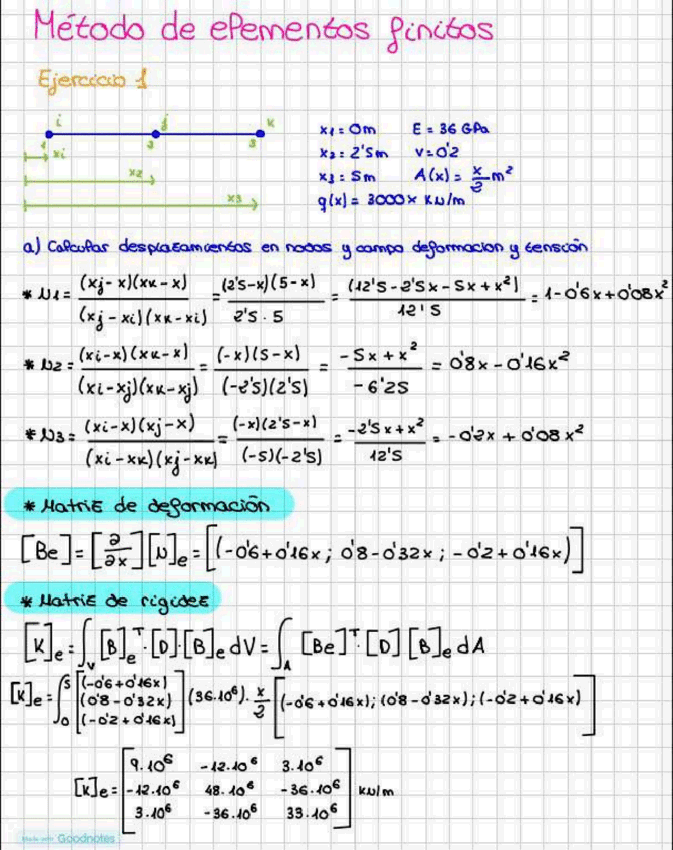 Método de elementos finitos
Ejercicio 1
i j k
1 2 3
xi
x2
x3
x1 = 0m E = 36 GPa
x2 = 2'5m v = 0'2
x3 = 5m A(x) = x/2 m²
q(x) = 3000x kN/m
a) Calcular desplazamientos en nodos y campo deformacion y tensión
* N1 = (xj - x)(xk - x) / (xj - xi)(xk - xi) = (2'5 - x)(5 - x) / 2'5 · 5 = (12'5 - 2'5x - 5x + x²) / 12'5 = 1 - 0'6x + 0'08x²
* N2 = (xi - x)(xk - x) / (xi - xj)(xk - xj) = (-x)(5 - x) / (-2'5)(2'5) = -5x + x² / -6'25 = 0'8x - 0'16x²
* N3 = (xi - x)(xj - x) / (xi - xk)(xj - xk) = (-x)(2'5 - x) / (-5)(-2'5) = -2'5x + x² / 12'5 = -0'2x + 0'08x²
* Matriz de deformación
[Be] = [∂/∂x][N]e = [(-0'6 + 0'16x ; 0'8 - 0'32x ; -0'2 + 0'16x)]
* Matriz de rigidez
[K]e = ∫v [B]eᵀ · [D] · [B]e dV = ∫A [Be]ᵀ · [D] [B]e dA
[K]e = ∫₀⁵ [(-0'6 + 0'16x) (0'8 - 0'32x) (-0'2 + 0'16x)] (36·10⁶) · x/2 [(-0'6 + 0'16x) ; (0'8 - 0'32x) ; (-0'2 + 0'16x)]
9·10⁶ -12·10⁶ 3·10⁶
[K]e = -12·10⁶ 48·10⁶ -36·10⁶ kN/m
3·10⁶ -36·10⁶ 33·10⁶
Made with Goodnotes